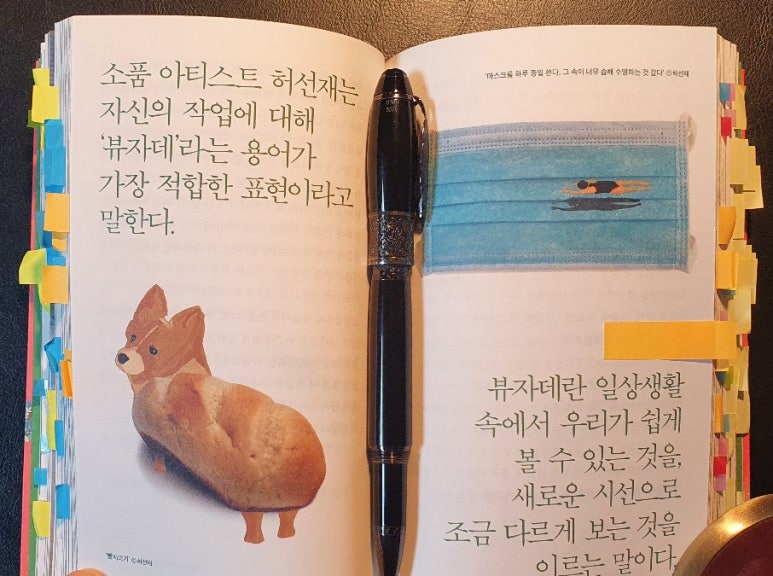 소품 아티스트 허선재는
자신의 작업에 대해
‘뷰자데’라는 용어가
가장 적합한 표현이라고
말한다.
ⓒ허선재
‘마스크를 하루 종일 쓴다. 그 속이 너무 습해 수영하는 것 같다’ ⓒ허선재
뷰자데란 일상생활
속에서 우리가 쉽게
볼 수 있는 것을,
새로운 시선으로
조금 다르게 보는 것을
이르는 말이다.